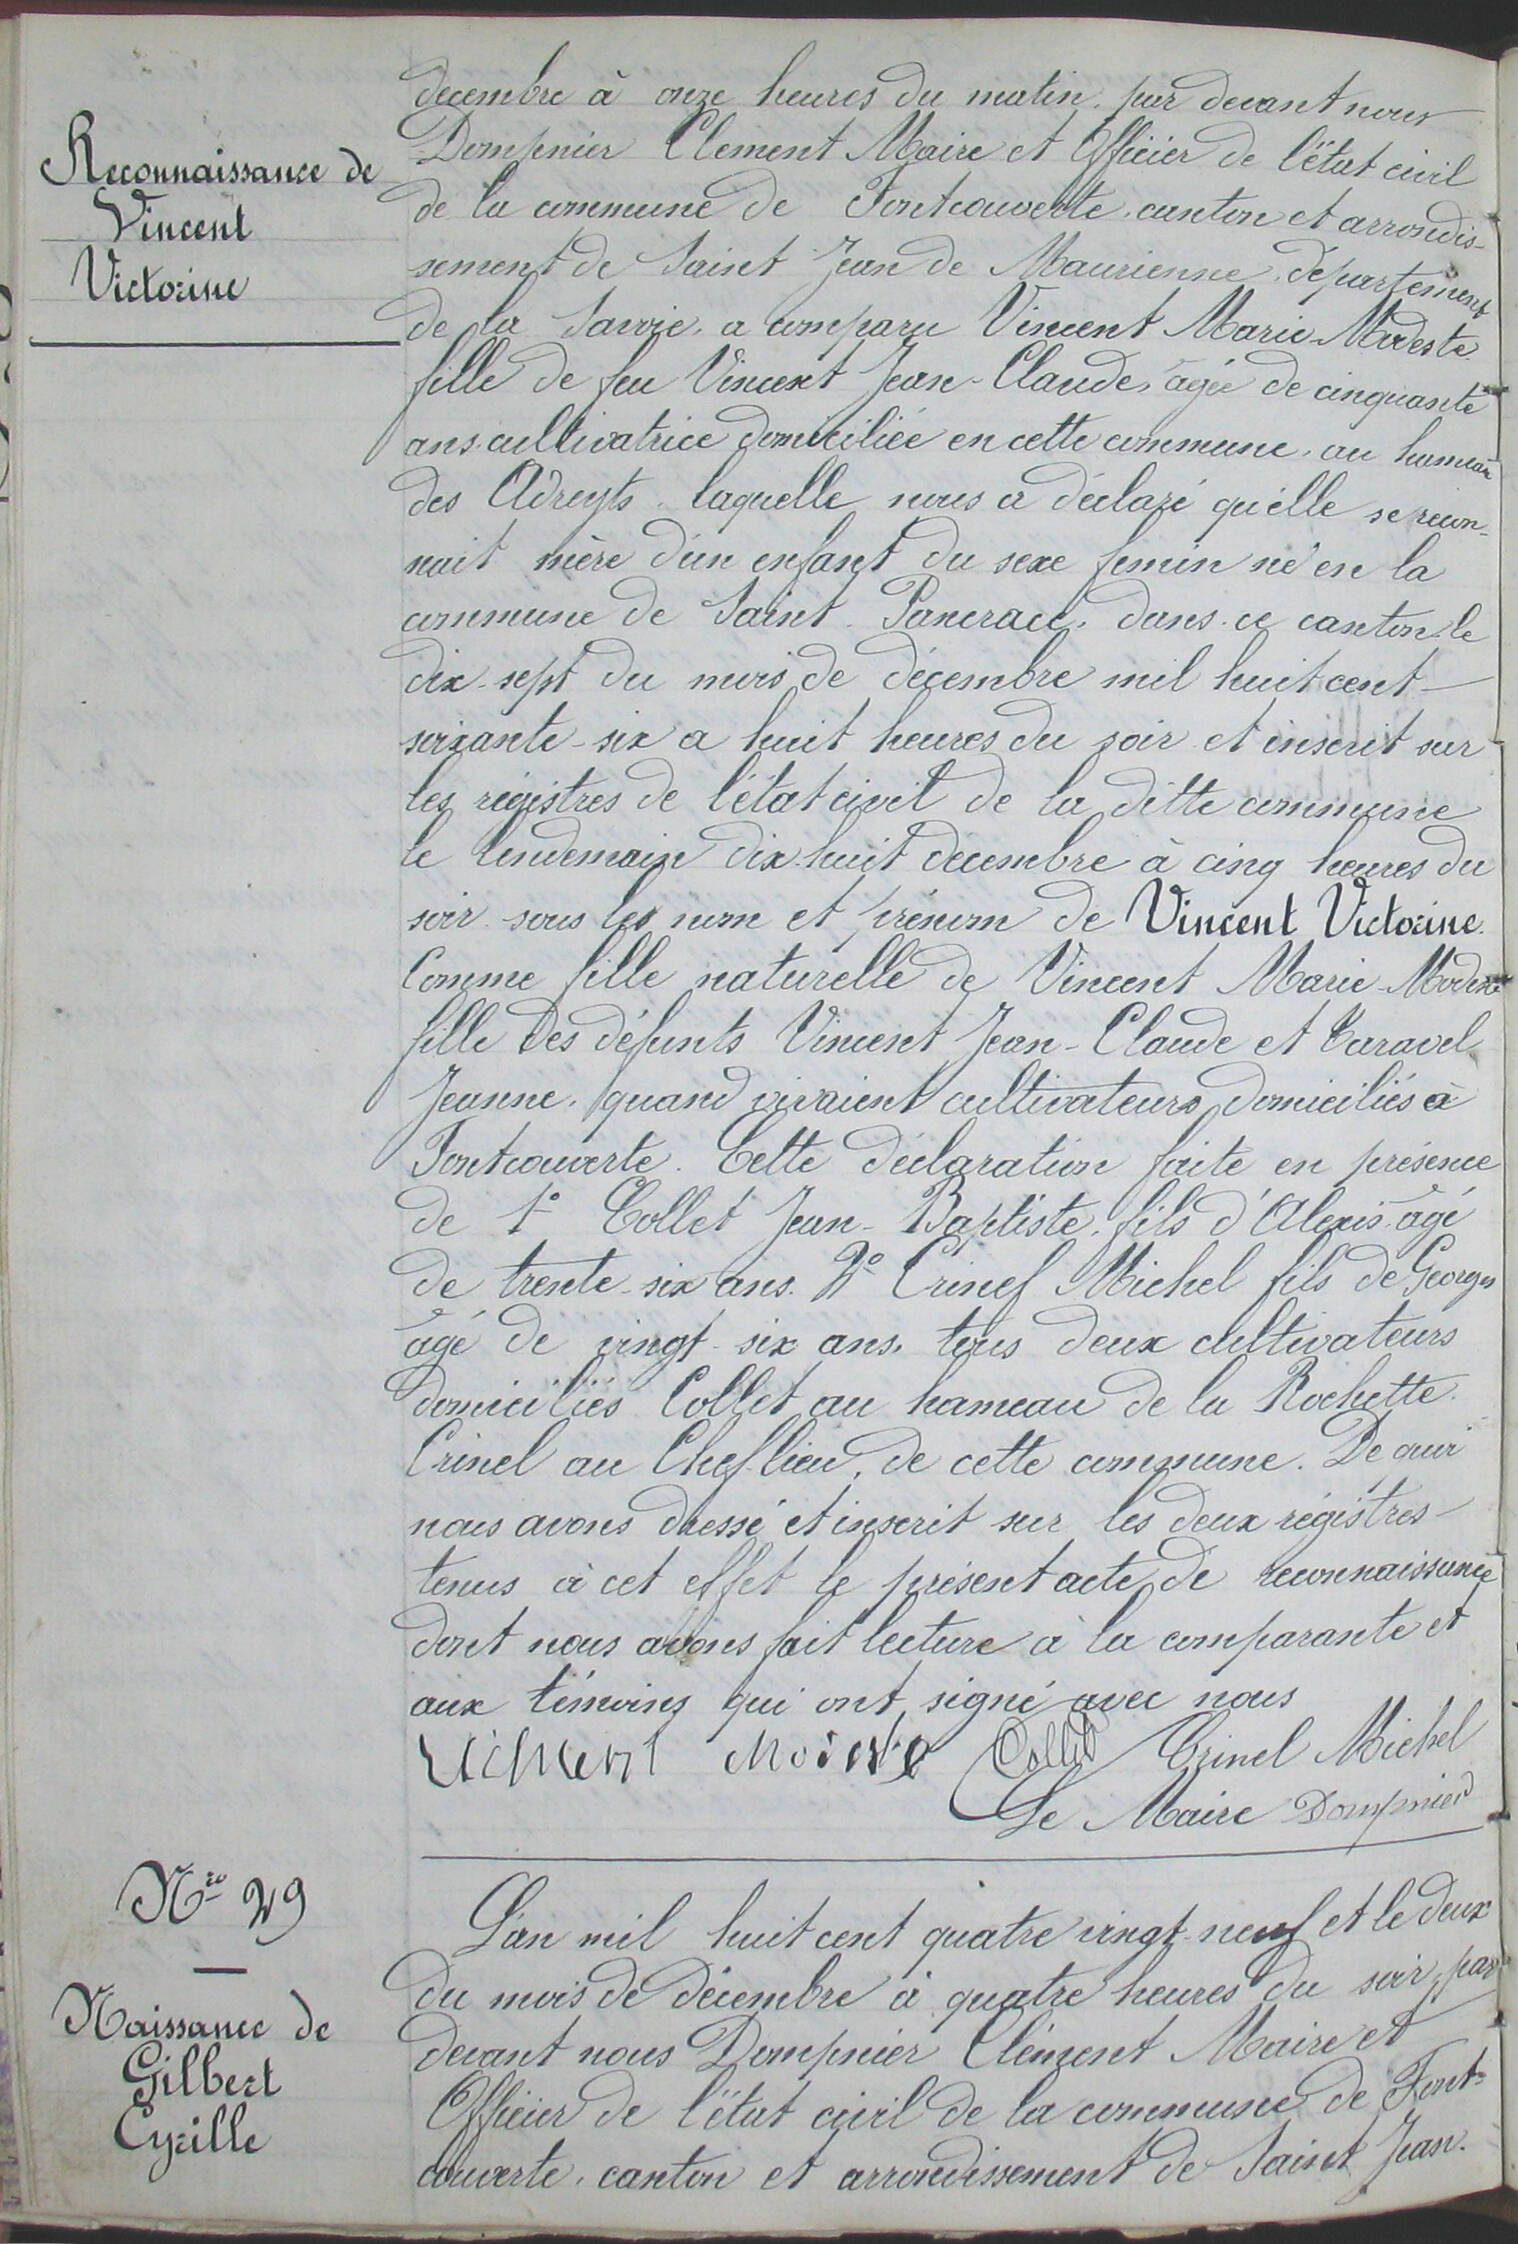 Reconnaissance de
Vincent
Victorine
decembre à onze heures du matin, par devant nous
Dompnier Clement Maire et Officier de l'état civil
de la commune de Fontcouverte, canton et arrondis-
sement de Saint Jean de Maurienne, département
de la Savoie, a comparu Vincent Marie-Modeste
fille de feu Vincent Jean-Claude, agée de cinquante
ans cultivatrice domiciliée en cette commune, au hameau
des Adreyts. laquelle nous a déclaré qu'elle se recon-
nait mère d'un enfant du sexe femin né en la
commune de Saint-Pancrace, dans ce canton le
dix-sept du mois de décembre mil huit cent-
soixante-six a huit heures du soir et inscrit sur
les régistres de l'état civil de la ditte commune
le lendemain dix-huit décembre à cinq heures du
soir sous les nom et prénom de Vincent Victorine.
Comme fille naturelle de Vincent Marie-Modeste
fille des défunts Vincent Jean-Claude et Taravel
Jeanne, quand vivaient cultivateurs domiciliés à
Fontcouverte. Cette déclaration faite en présence
de 1° Collet Jean-Baptiste, fils d'Alexis âgé
de trente-six ans. 2° Crinel Michel fils de Georges
âgé de vingt-six ans, tous deux cultivateurs
domiciliés Collet au hameau de la Rochette.
Crinel au Chef-lieu, de cette commune. De quoi
nous avons dressé et inscrit sur les deux régistres-
tenus à cet effet le présent acte de reconnaissance
dont nous avons fait lecture à la comparante et
aux témoins qui ont signé avec nous
Vincent Modeste Collet Crinel Michel
Le Maire Dompnier
Nro 29
Naissance de
Gilbert
Cyrille
L'an mil huit cent quatre vingt-neuf et le deux
du mois de décembre à quatre heures du soir, par
devant nous Dompnier Clément Maire et
Officier de l'état civil de la commune de Font-
couverte, canton et arrondissement de Saint Jean-